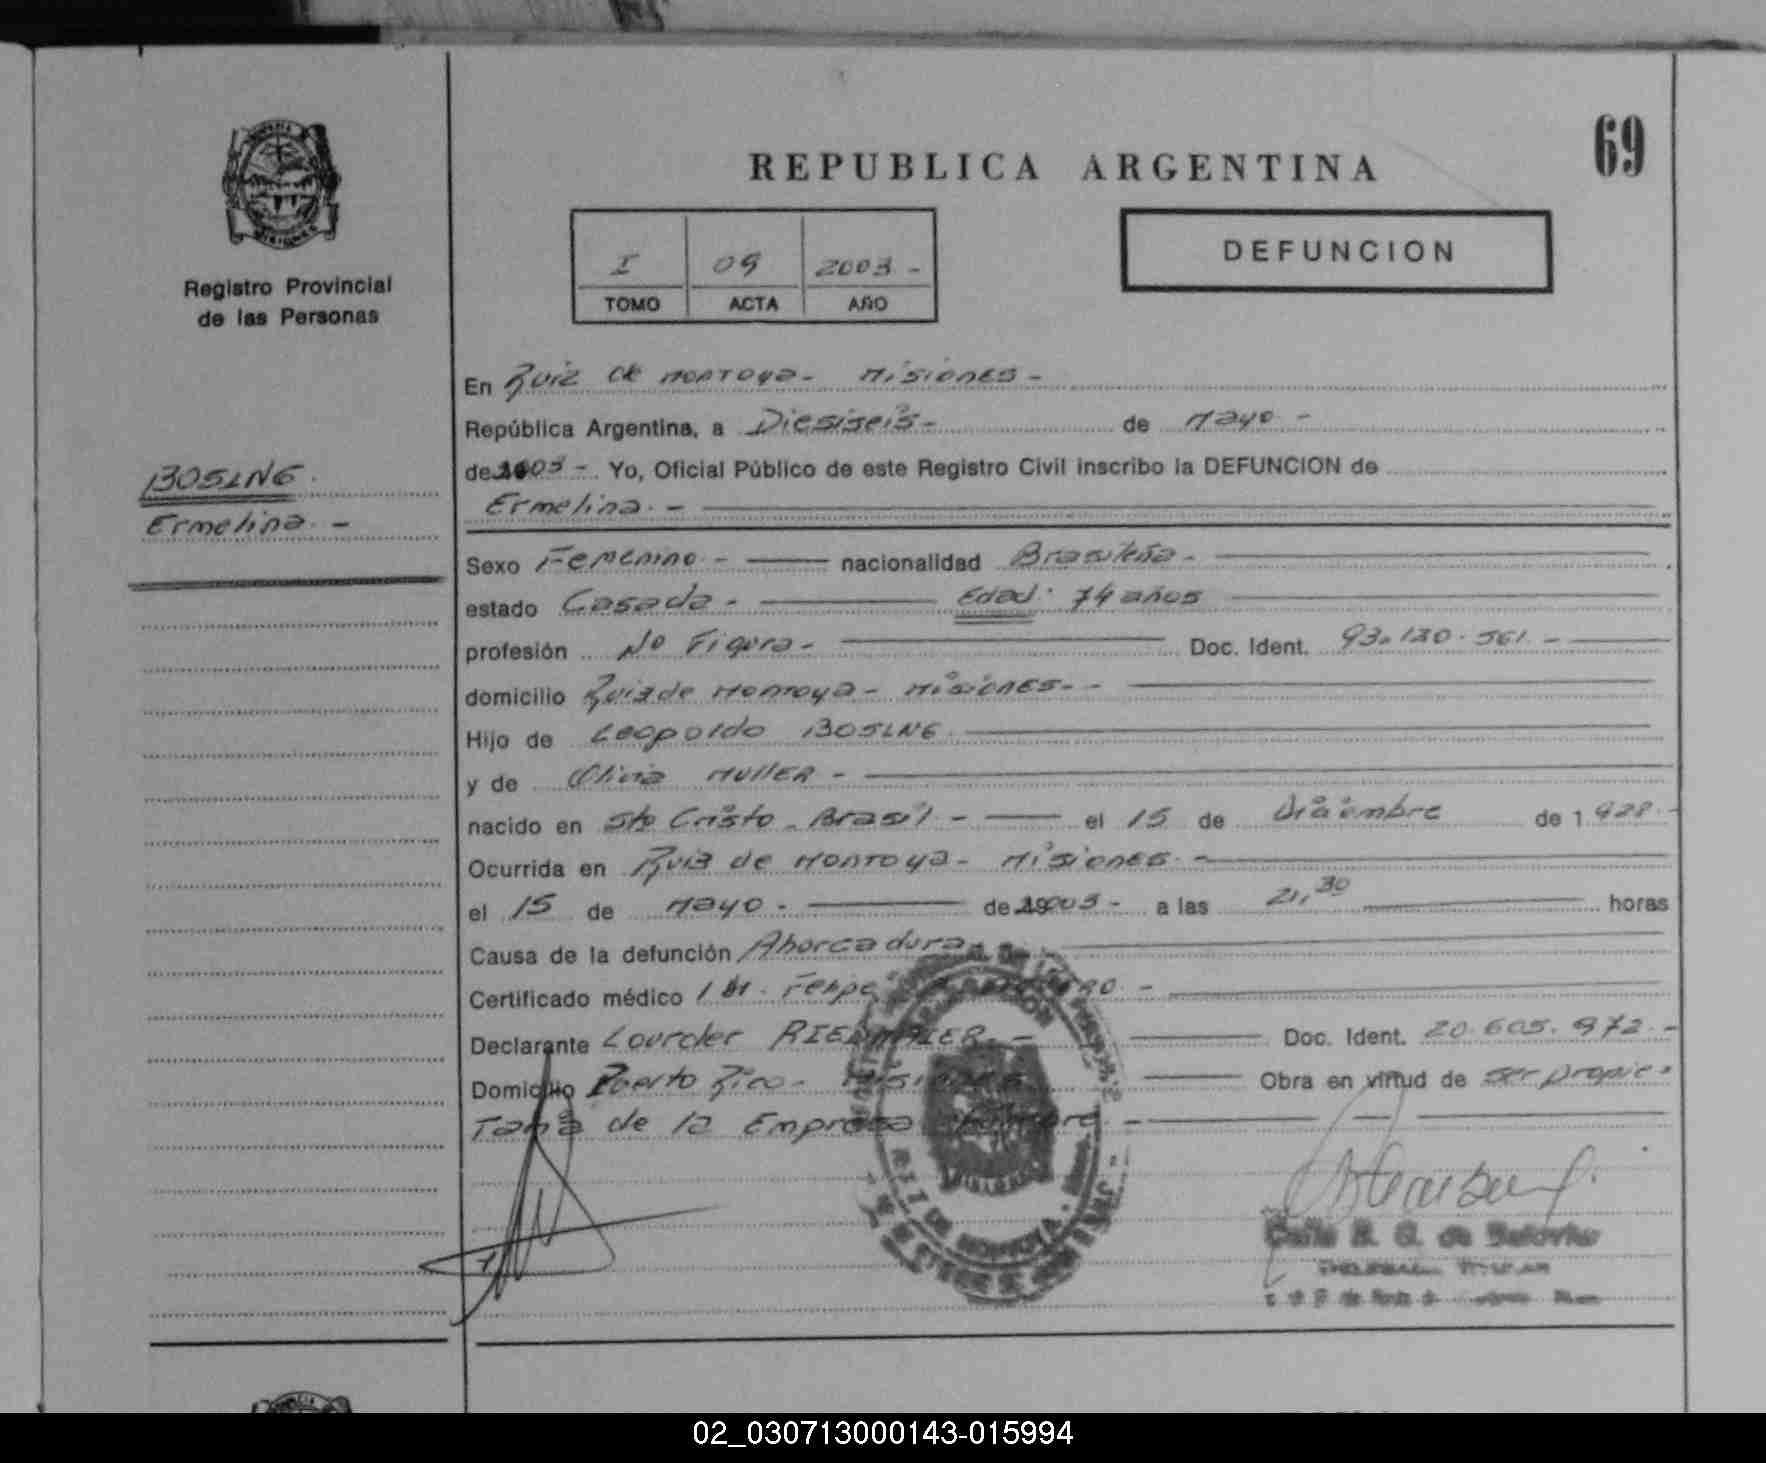 69
REPUBLICA ARGENTINA
MISIONES
Registro Provincial
de las Personas
I 09 2003 -
TOMO ACTA AÑO
DEFUNCION
BOSLNG.
Ermelina. -
En Ruiz de Montoya - Misiones -
República Argentina, a Diesiseis - de Mayo -
de 2003 - Yo, Oficial Público de este Registro Civil inscribo la DEFUNCION de
Ermelina. -
Sexo Femenino - nacionalidad Brasileña -
estado Casada - Edad: 74 años
profesión No Figura - Doc. Ident. 93.130.561. -
domicilio Ruiz de Montoya - Misiones - -
Hijo de Leopoldo BOSLNG
y de Olivia MULLER -
nacido en Sto Cristo - Brasil - el 15 de Diciembre de 1 928 -
Ocurrida en Ruiz de Montoya - Misiones. -
el 15 de Mayo - de 2003 - a las 21,30 horas
Causa de la defunción Ahorcadura
Certificado médico
Declarante Lourdes Doc. Ident. 20.605.972. -
Domicilio Puerto Rico - Misiones Obra en virtud de ser propie -
Taria de la Empresa
RUIZ DE MONTOYA
02_030713000143-015994